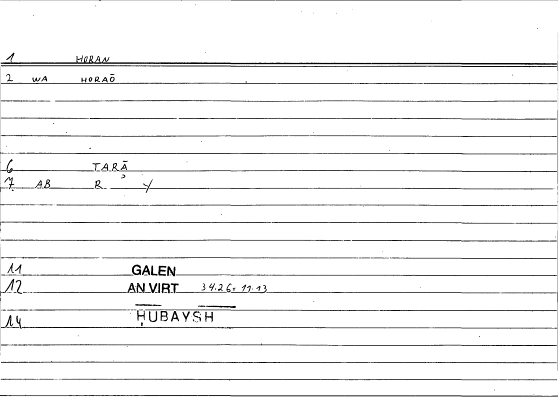 1 HORAN
2 WA HORAŌ
6 TARĀ
7 AB R Y
11 GALEN
12 AN VIRT 34.26, 11-13
14 ḤUBAYSH